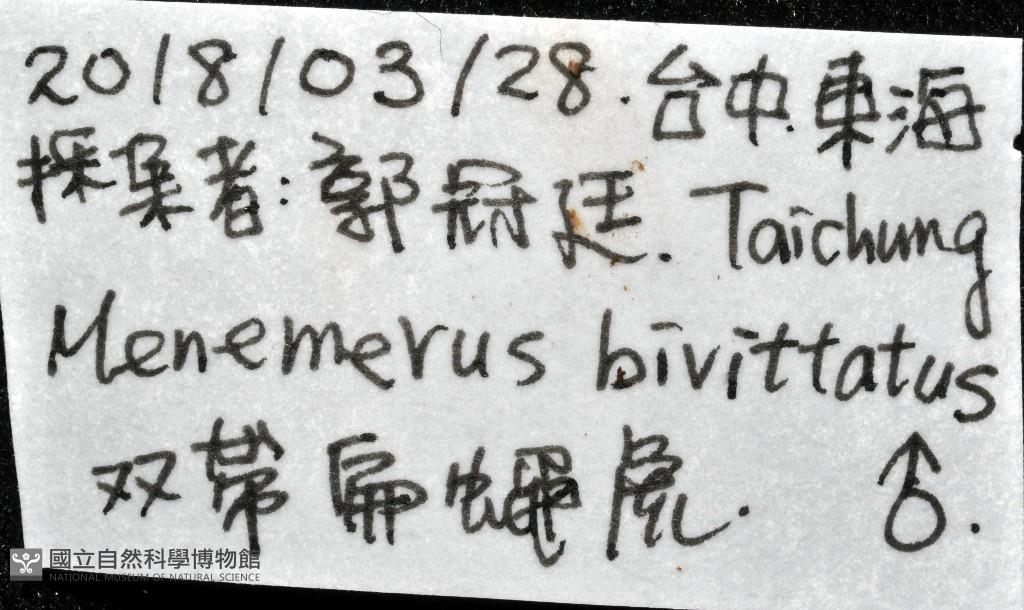 2018/03/28. 台中.東海
採集者:郭冠廷. Taichung
Menemerus bivittatus
双帶扁蠅虎. ♂.
國立自然科學博物館
NATIONAL MUSEUM OF NATURAL SCIENCE